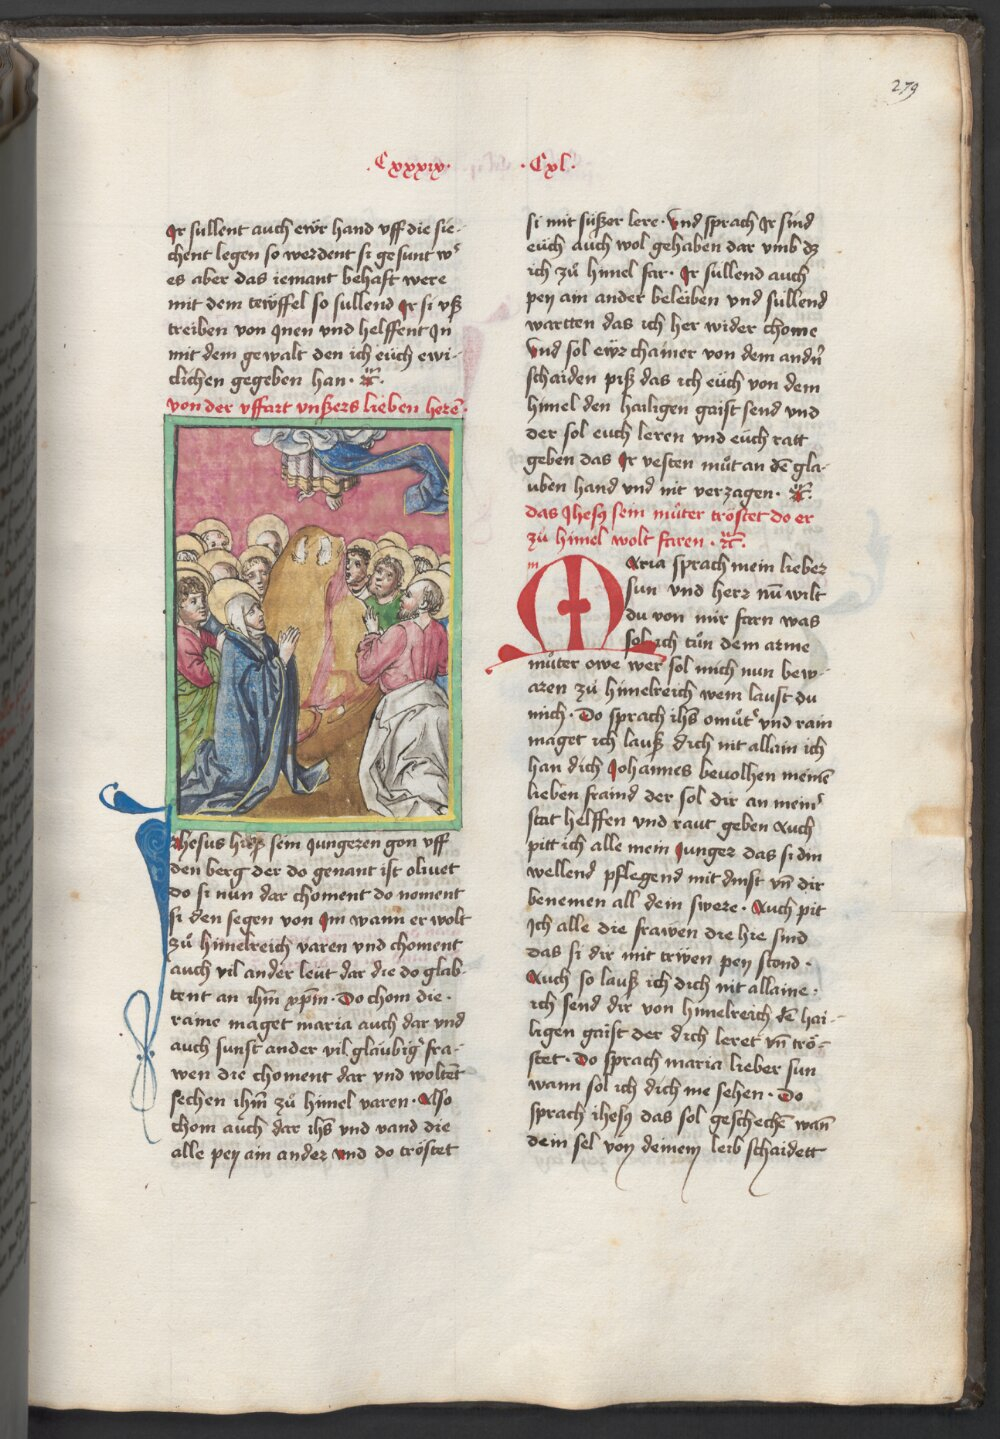 279
.Cxxxix.
.Cxl.
Jr sullent auch ewr hand vff die sie-
chent legen so werdent si gesunt wͦ
es aber das iemant behaft were
mit dem tewffel so sullend Jr si vß
treiben von Jnen vnd helffent Jn
mit dem gewalt den ich euch ewi-
clichen gegeben han.
von der vffart vnßers lieben herē.
Jhesus hieß sein Jungeren gon vff
den berg der do genant ist olivet
do si nun dar choment do noment
si den segen von Jm wann er wolt
zuͦ himelreich varen vnd choment
auch vil ander leut dar die do glab-
tent an ihm̄ xp̄m. Do chom die.
raine maget maria auch dar vnd
auch sunst ander vil glaubigͦ fra-
wen die choment dar vnd woltēt
sechen ihm̄ zuͦ himel varen. Also
chom auch dar ihs̄ vnd vand die
alle pey ain ander vnd do tröstet
si mit süßer lere. Vnd sprach Jr sind
euch auch wol gehaben dar vmb dz
ich zuͦ himel far. Jr sullend auch
pey ain ander beleiben vnd sullend
wartten das ich her wider chome
Vnd sol ewr chainer von dem andn̄
schaiden piß das ich euch von dem
himel den hailigen gaist send vnd
der sol euch leren vnd euch ratt
geben das Jr vesten muͦt an dē gla-
uben hand vnd nit verzagen.
das Jhesꝯ sein muͦter tröstet do er
zuͦ himel wolt faren.
m
Maria sprach mein lieber
sun vnd herr nu wilt
du von mir farn was
sol ich tuͦn dem arme
muͦter owe wer sol mich nun bew-
aren zuͦ himelreich wem laust du
mich. Do sprach ihs̄ o muͦtͦ vnd rain
maget ich lauß dich nit allain ich
han dich Johannes bevolhen meinē
lieben fraind der sol dir an meinͦ
stat helffen vnd raut geben Auch
pitt ich alle mein Junger das si din
wellend pflegend mit dinst vn̄ dir
benemen all dein swere. Auch pit
Jch alle die frawen die hie sind
das si dir mit trewen pey stond.
Auch so lauß ich dich nit allaine.
ich send dir von himelreich dē hai-
ligen gaist der dich leret vn̄ trö-
stet. Do sprach maria lieber sun
wann sol ich dich me sehen. Do
sprach ihesꝯ das sol geschechē wan̄
dein sel von deinem leib schaidett